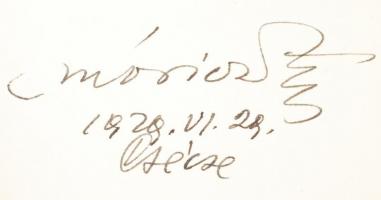 móricz
1929.VI.29.
Csécse